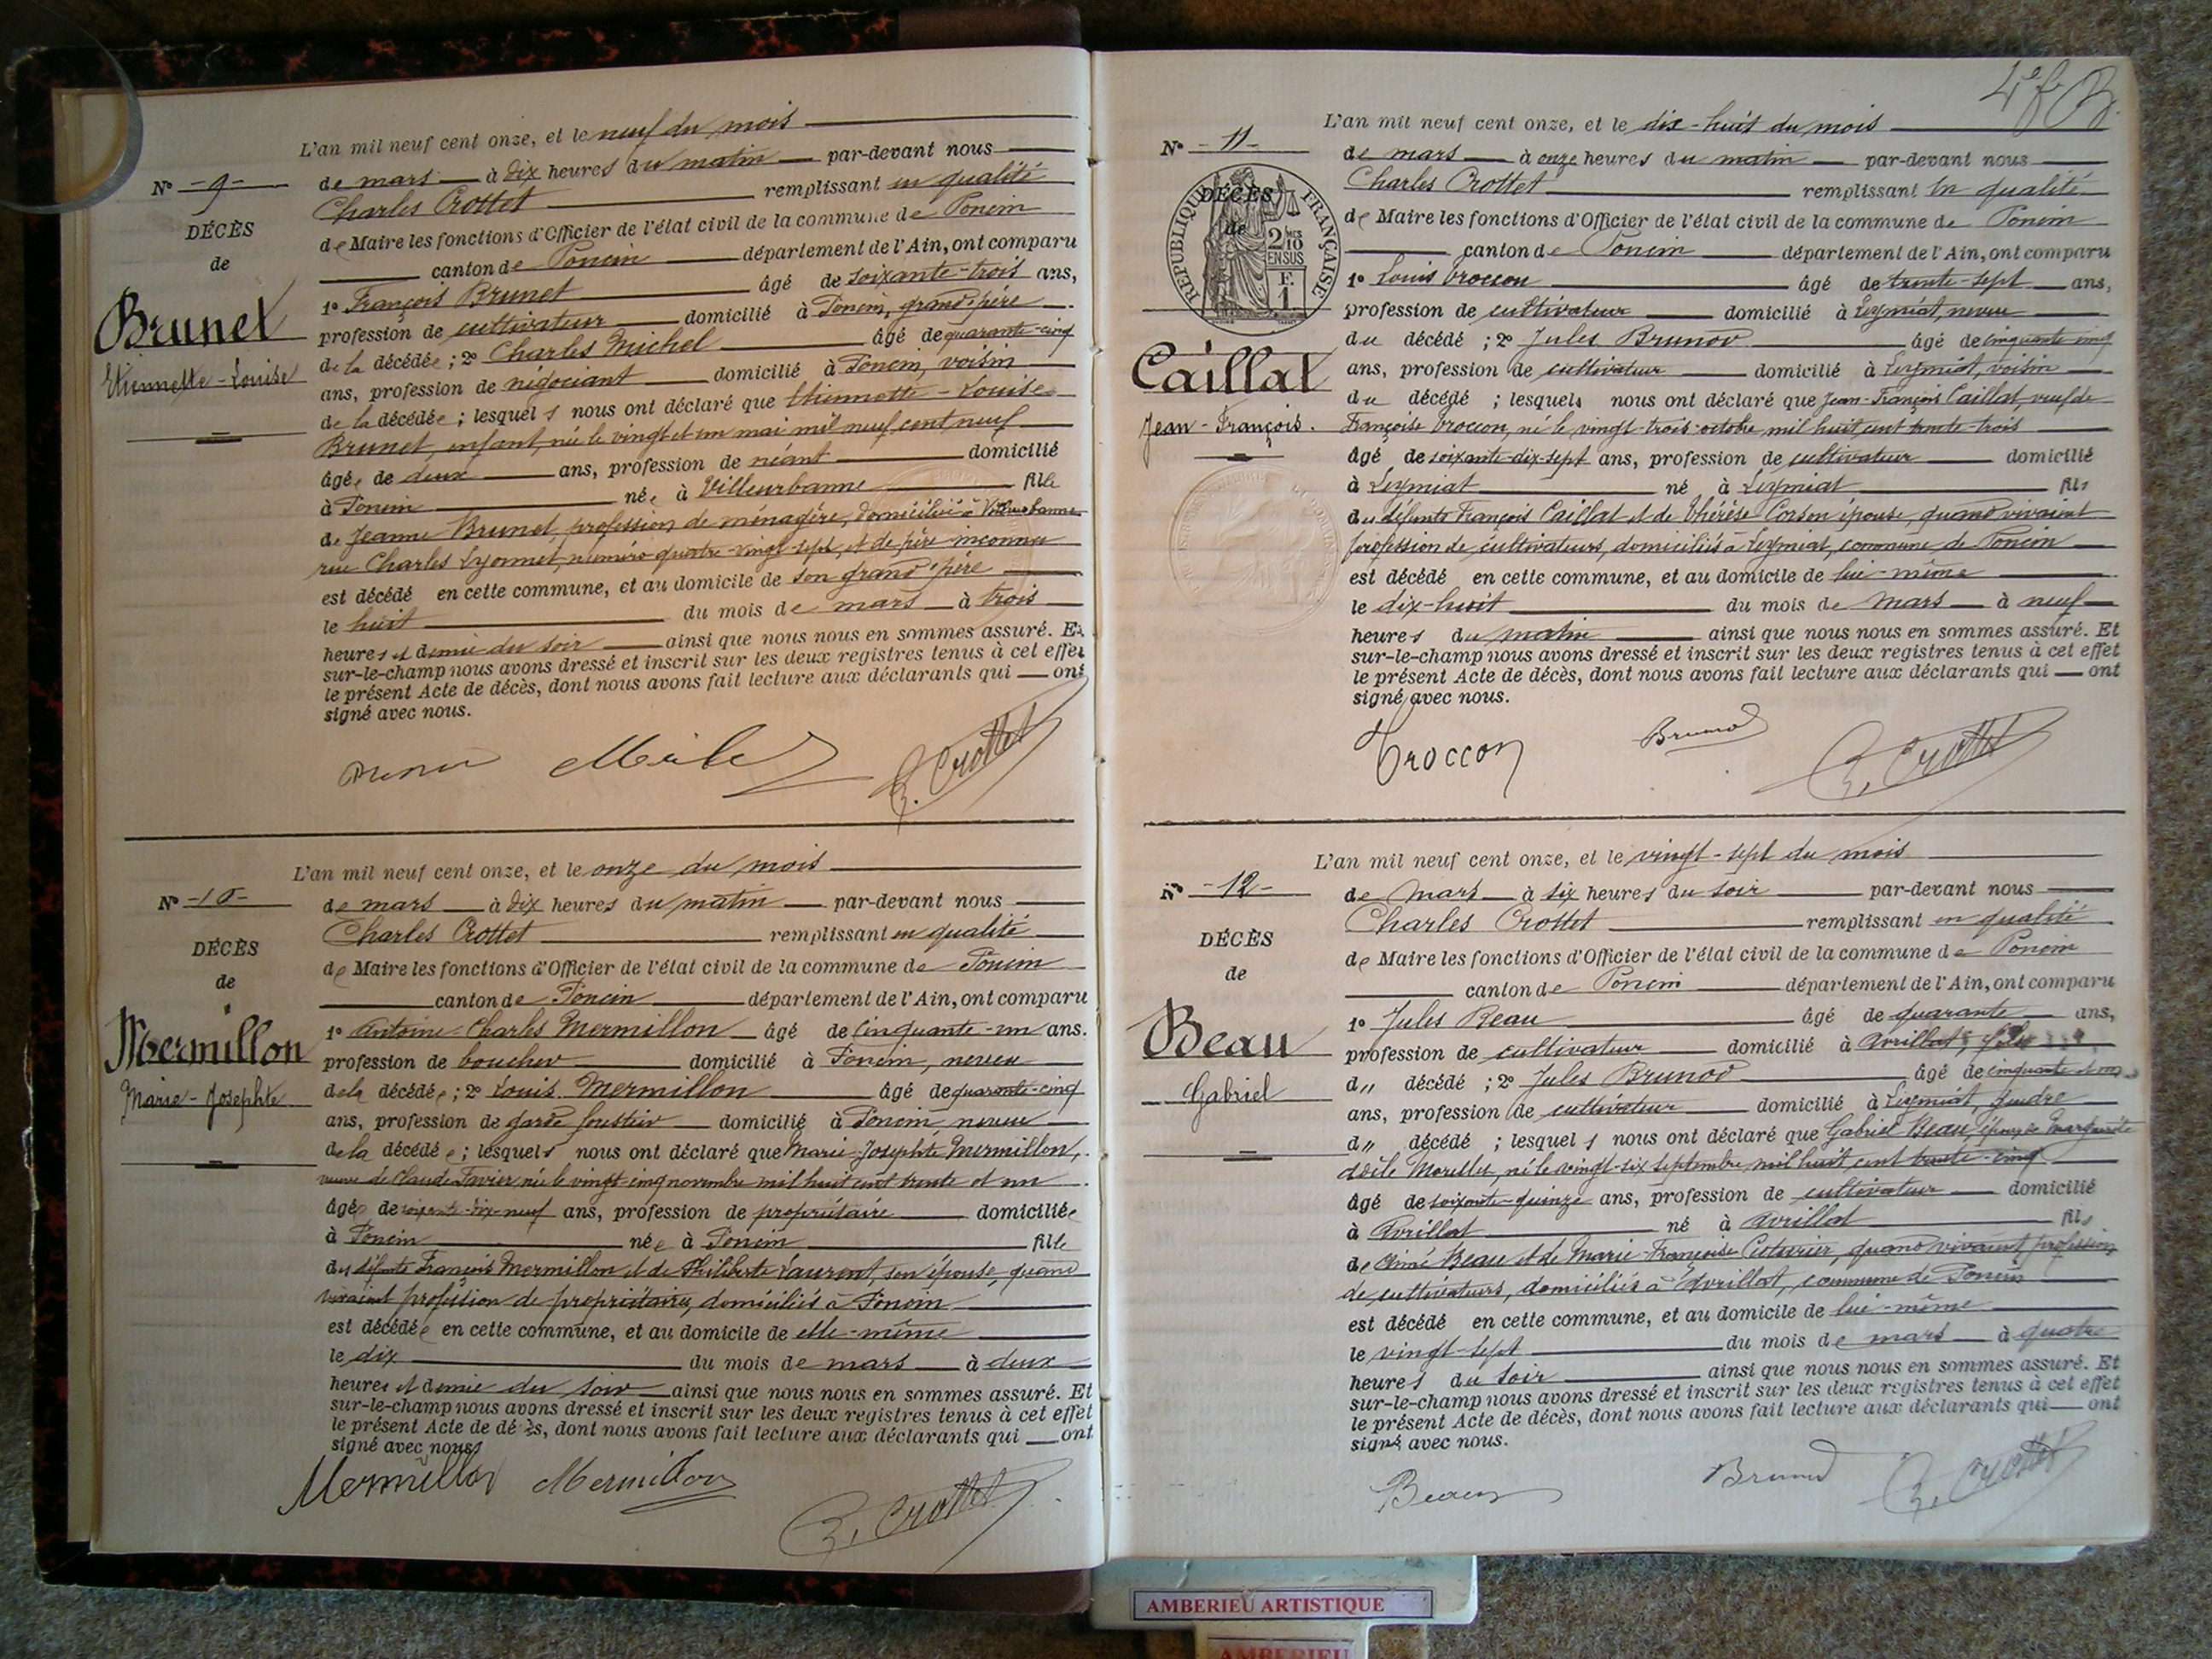 L'an mil neuf cent onze, et le neuf du mois
N° -9-
de mars à dix heures du matin par-devant nous
Charles Crottet remplissant en qualité
DÉCÈS
de Maire les fonctions d'Officier de l'état civil de la commune de Poncin
de
canton de Poncin département de l'Ain, ont comparu
1° François Brunet âgé de soixante-trois ans,
Brunet
profession de cultivateur domicilié à Poncin, grand'père
Etiennette-Louise
de la décédée ; 2° Charles Michel âgé de quarante-cinq
ans, profession de négociant domicilié à Poncin, voisin
de la décédée ; lesquels nous ont déclaré que Etiennette-Louise
Brunet, enfant, née le vingt et un mai mil neuf cent neuf
âgée de deux ans, profession de néant domicilié
à Poncin née à Villeurbanne fille
de Jeanne Brunet, profession de ménagère, domiciliée à Villeurbanne
rue Charles Lyonnet, numéro quatre-vingt-sept, et de père inconnu
est décédé en cette commune, et au domicile de son grand'père
le huit du mois de mars à trois
heures et demie du soir ainsi que nous nous en sommes assuré. Et
sur-le-champ nous avons dressé et inscrit sur les deux registres tenus à cet effet
le présent Acte de décès, dont nous avons fait lecture aux déclarants qui ont
signé avec nous.
C. Crottet
L'an mil neuf cent onze, et le onze du mois
N° -10-
de mars à dix heures du matin par-devant nous
Charles Crottet remplissant en qualité
DÉCÈS
de Maire les fonctions d'Officier de l'état civil de la commune de Poncin
de
canton de Poncin département de l'Ain, ont comparu
Mermillon
1° Antoine-Charles Mermillon âgé de cinquante-un ans.
profession de boucher domicilié à Poncin, neveu
Marie-Josephte
de la décédée ; 2° Louis Mermillon âgé de quarante-cinq
ans, profession de garde forestier domicilié à Poncin, neveu
de la décédée ; lesquels nous ont déclaré que Marie-Josephte Mermillon,
veuve de Claude Tavier, née le vingt-cinq novembre mil huit cent trente et un
âgée de soixante-dix-neuf ans, profession de propriétaire domiciliée
à Poncin née à Poncin fille
des défunts François Mermillon et de Philiberte Laurent, son épouse, quand
vivaient profession de propriétaires, domiciliés à Poncin
est décédée en cette commune, et au domicile de elle-même
le dix du mois de mars à deux
heures et demie du soir ainsi que nous nous en sommes assuré. Et
sur-le-champ nous avons dressé et inscrit sur les deux registres tenus à cet effet
le présent Acte de dé ès, dont nous avons fait lecture aux déclarants qui ont
signé avec nous
Mermillon Mermillon
C. Crottet
4e f
L'an mil neuf cent onze, et le dix-huit du mois
N° -11-
de mars à onze heures du matin par-devant nous
Charles Crottet remplissant en qualité
DÉCÈS
de
RÉPUBLIQUE FRANÇAISE
2/10 EN SUS
F. 1
de Maire les fonctions d'Officier de l'état civil de la commune de Poncin
canton de Poncin département de l'Ain, ont comparu
1° Louis Troccon âgé de trente-sept ans,
profession de cultivateur domicilié à Leymiat, neveu
Caillat
du décédé ; 2° Jules Brunod âgé de cinquante cinq
ans, profession de cultivateur domicilié à Leymiat, voisin
du décédé ; lesquels nous ont déclaré que Jean-François Caillat, veuf de
Jean-François.
Françoise Troccon, né le vingt-trois octobre mil huit cent trente-trois
âgé de soixante-dix-sept ans, profession de cultivateur domicilié
à Leymiat né à Leymiat fils
des défunts François Caillat et de Thérèse Corson épouse, quand vivaient
profession de cultivateurs, domiciliés à Leymiat, commune de Poncin
est décédé en cette commune, et au domicile de lui-même
le dix-huit du mois de mars à neuf
heures du matin ainsi que nous nous en sommes assuré. Et
sur-le-champ nous avons dressé et inscrit sur les deux registres tenus à cet effet
le présent Acte de décès, dont nous avons fait lecture aux déclarants qui ont
signé avec nous.
Troccon Brunod C. Crottet
L'an mil neuf cent onze, et le vingt-sept du mois
N° -12-
de mars à six heures du soir par-devant nous
Charles Crottet remplissant en qualité
DÉCÈS
de Maire les fonctions d'Officier de l'état civil de la commune de Poncin
de
canton de Poncin département de l'Ain, ont comparu
1° Jules Beau âgé de quarante ans,
Beau
profession de cultivateur domicilié à Avrillat, fils
Gabriel
d" décédé ; 2° Jules Brunod âgé de cinquante et
ans, profession de cultivateur domicilié à Leymiat, gendre
d" décédé ; lesquels nous ont déclaré que Gabriel Beau, époux de Marguerite
né le vingt-six septembre mil huit cent trente-cinq
âgé de soixante-quinze ans, profession de cultivateur domicilié
à Avrillat né à Avrillat fils
de Aimé Beau et de Marie-Françoise Cuturier, quand vivaient profession
de cultivateurs, domiciliés à Avrillat, commune de Poncin
est décédé en cette commune, et au domicile de lui-même
le vingt-sept du mois de mars à quatre
heures du soir ainsi que nous nous en sommes assuré. Et
sur-le-champ nous avons dressé et inscrit sur les deux registres tenus à cet effet
le présent Acte de décès, dont nous avons fait lecture aux déclarants qui ont
signé avec nous.
Beau Brunod C. Crottet
AMBERIEU ARTISTIQUE
AMBERIEU